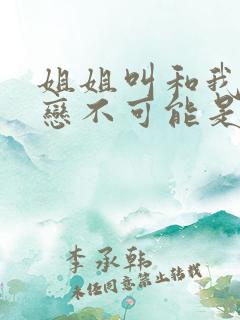 姐姐叫和我
戀不可能是
李承韓
未经同意禁止转载